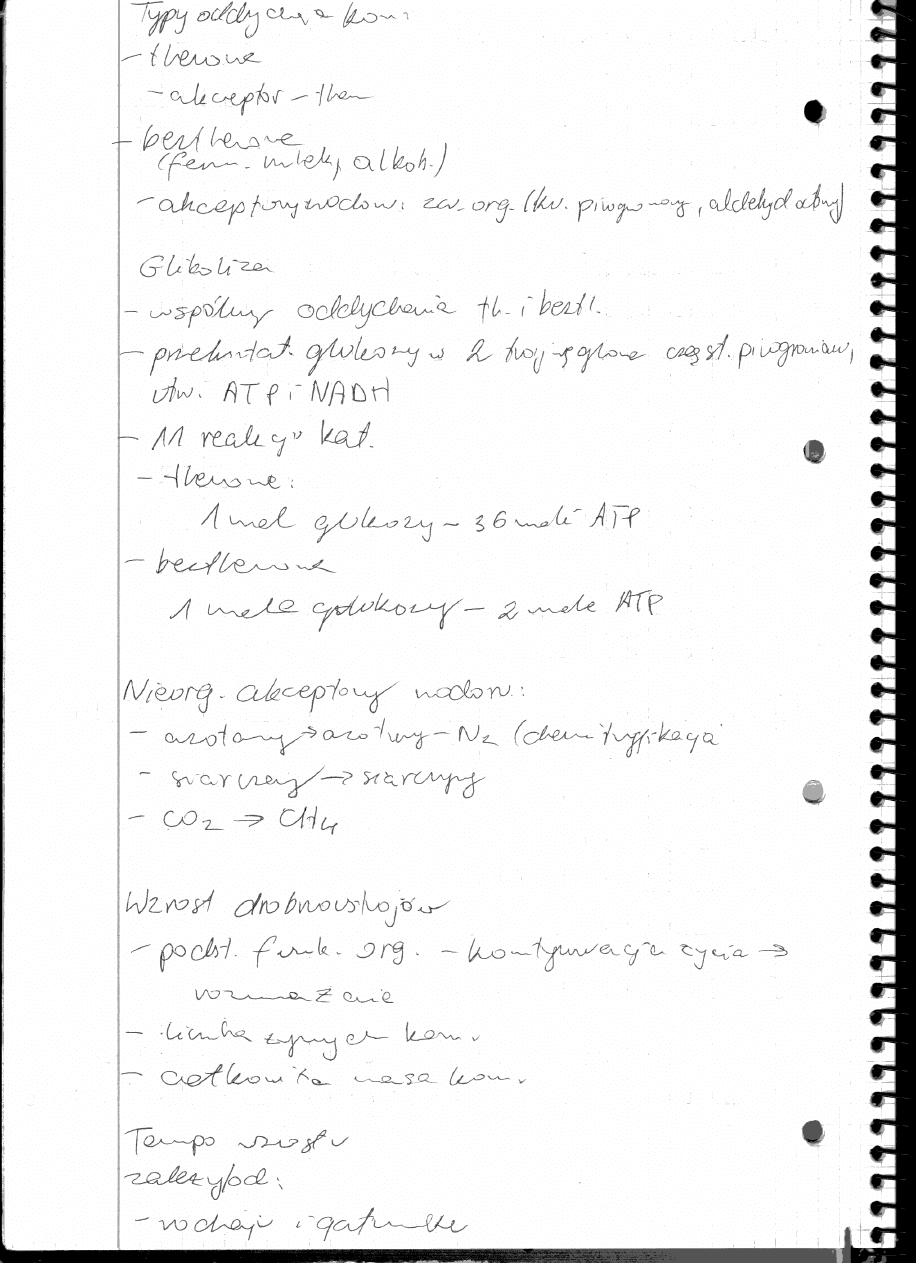 Typy oddych. kom:
- tlenowe
- akceptor - tlen
- beztlenowe
(ferm. mlek, alkoh.)
- akceptory wodow: zw. org. (kw. pirogronowy, aldehyd octowy)
Glikoliza
- wspólny oddychania tl. i beztl.
- przekształt. glukozy w 2 trójwęglowe cząst. pirogronianu,
utw. ATP i NADH
- 11 reakcji kat.
- tlenowe:
1 mol glukozy - 36 moli ATP
- beztlenowe
1 mole glukozy - 2 mole ATP
Nieorg. akceptory wodoru:
- azotany → azotyny - N2 (denitryfikacja
- siarczany → siarczyny
- CO2 → CH4
Wzrost drobnoustrojów
- podst. funk. org. - kontynuacja życia →
rozmnażanie
- liczba żywych kom.
- całkowita masa kom.
Tempo wzrostu
zależy od:
- rodzaju i gatunku